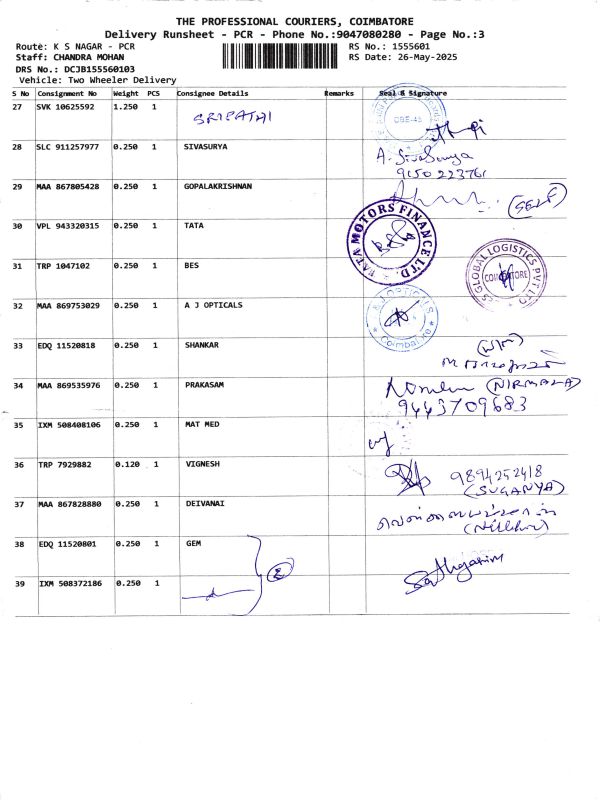 THE PROFESSIONAL COURIERS, COIMBATORE
Delivery Runsheet - PCR - Phone No.:9047080280 - Page No.:3
Route: K S NAGAR - PCR RS No.: 1555601
Staff: CHANDRA MOHAN RS Date: 26-May-2025
DRS No.: DCJB155560103
Vehicle: Two Wheeler Delivery
S No Consignment No Weight PCS Consignee Details Remarks Seal & Signature
27 SVK 10625592 1.250 1 SRIPATHI
28 SLC 911257977 0.250 1 SIVASURYA A. SivaSurya
9150223761
29 MAA 867805428 0.250 1 GOPALAKRISHNAN (SELF)
30 VPL 943320315 0.250 1 TATA TATA MOTORS FINANCE LTD.
31 TRP 1047102 0.250 1 BES GLOBAL LOGISTICS PVT LTD COIMBATORE
32 MAA 869753029 0.250 1 A J OPTICALS A.J.OPTICALS Coimbatore
33 EDQ 11520818 0.250 1 SHANKAR
34 MAA 869535976 0.250 1 PRAKASAM (NIRMALA)
9443709683
35 IXM 508408106 0.250 1 MAT MED
36 TRP 7929882 0.120 1 VIGNESH 9894252418
(SUGANYA)
37 MAA 867828880 0.250 1 DEIVANAI
38 EDQ 11520801 0.250 1 GEM
2
39 IXM 508372186 0.250 1